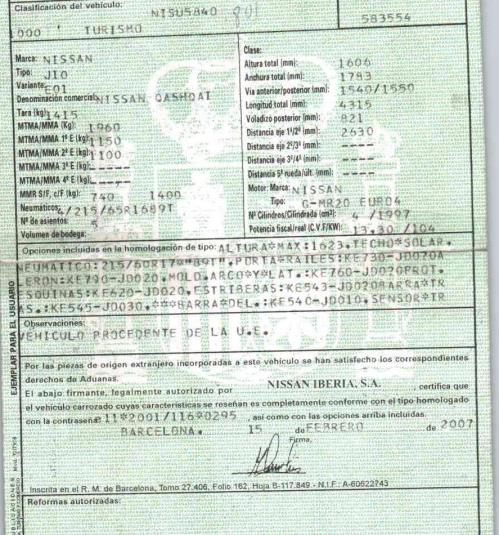 Clasificación del vehículo: NISU5840 801
583554
1000 ' TURISMO
Marca: NISSAN
Tipo: J10
Variante: E01
Denominación comercial: NISSAN QASHQAI
Tara (kg): 1415
MTMA/MMA (Kg): 1960
MTMA/MMA 1º E (kg): 1150
MTMA/MMA 2º E (kg): 1100
MTMA/MMA 3º E (kg): ----
MTMA/MMA 4º E (kg): ----
MMR S/F, c/F (kg): 740 1400
Neumáticos: 4/215/65R1689T
Nº de asientos: 5
Volumen de bodega: ----
Clase:
Altura total (mm): 1606
Anchura total (mm): 1783
Vía anterior/posterior (mm): 1540/1550
Longitud total (mm): 4315
Voladizo posterior (mm): 821
Distancia eje 1º/2º (mm): 2630
Distancia eje 2º/3º (mm): ----
Distancia eje 3º/4º (mm): ----
Distancia 5ª rueda/últ. (mm): ----
Motor: Marca: NISSAN
Tipo: G-MR20 EURO4
Nº Cilindros/Cilindrada (cm3): 4 /1997
Potencia fiscal/real (C.V.F/KW): 13.30 /104
Opciones incluidas en la homologación de tipo: ALTURA*MAX:1623.TECHO*SOLAR.
NEUMATICO:215/60R17*"89T".PORTA*RAILES:KE730-JD020A
LERON:KE790-JD020.MOLD.ARCO*Y*LAT.:KE760-JD020PROT.
ESQUINAS:KE620-JD020.ESTRIBERAS:KE543-JD020BARRA*TR
AS.:KE545-JD030.***BARRA*DEL.:KE540-JD010.SENSOR*TR
Observaciones:
VEHICULO PROCEDENTE DE LA U.E.
Por las piezas de origen extranjero incorporadas a este vehículo se han satisfecho los correspondientes
derechos de Aduanas.
El abajo firmante, legalmente autorizado por NISSAN IBERIA, S.A. , certifica que
el vehículo carrozado cuyas características se reseñan es completamente conforme con el tipo homologado
con la contraseña: 11*2001/116*0295 , así como con las opciones arriba incluidas.
BARCELONA. 15 de FEBRERO de 2007
Firma,
Inscrita en el R. M. de Barcelona, Tomo 27.406, Folio 162, Hoja B-117.849 - N.I.F.: A-60622743
Reformas autorizadas:
EJEMPLAR PARA EL USUARIO